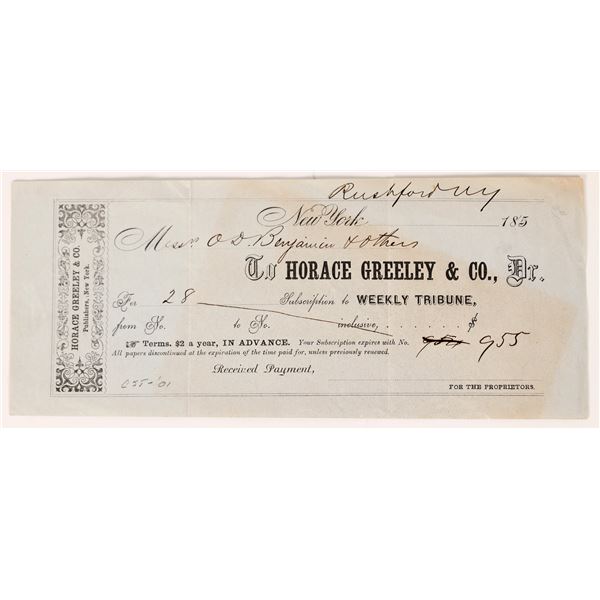 Rushford NY
New York 185
Messrs O D. Benjamin & Others
To HORACE GREELEY & CO., Dr.
For 28 Subscription to WEEKLY TRIBUNE,
from No. to No. inclusive, . . . . . . . $
☞ Terms. $2 a year, IN ADVANCE. Your Subscription expires with No. 955
All papers discontinued at the expiration of the time paid for, unless previously renewed.
Received Payment,
FOR THE PROPRIETORS.
HORACE GREELEY & CO.
Publishers, New York.